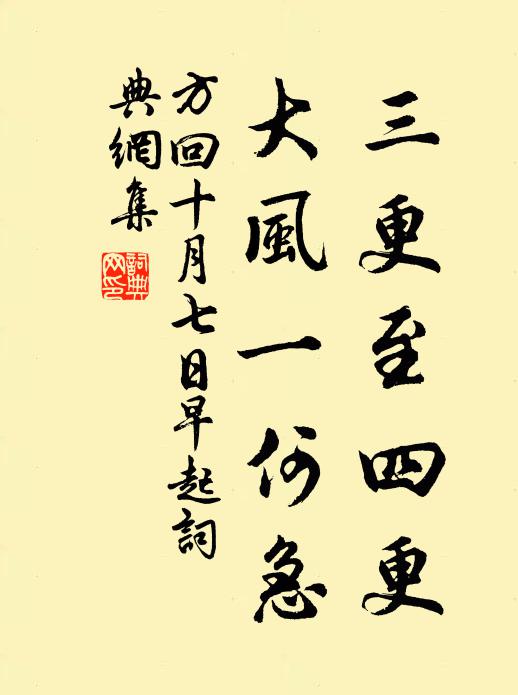 三更至四更
大風一何急
方回十月七日早起詞
典網集
詞典網印